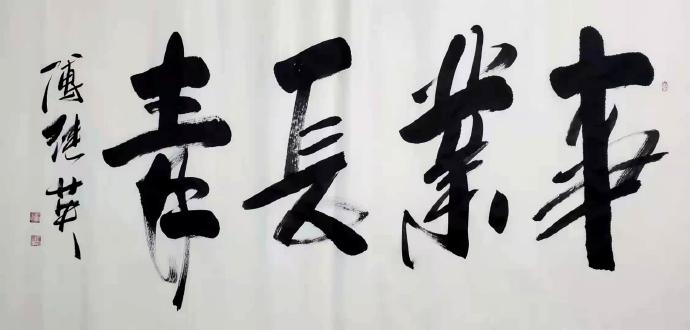 事業長青
傅继英